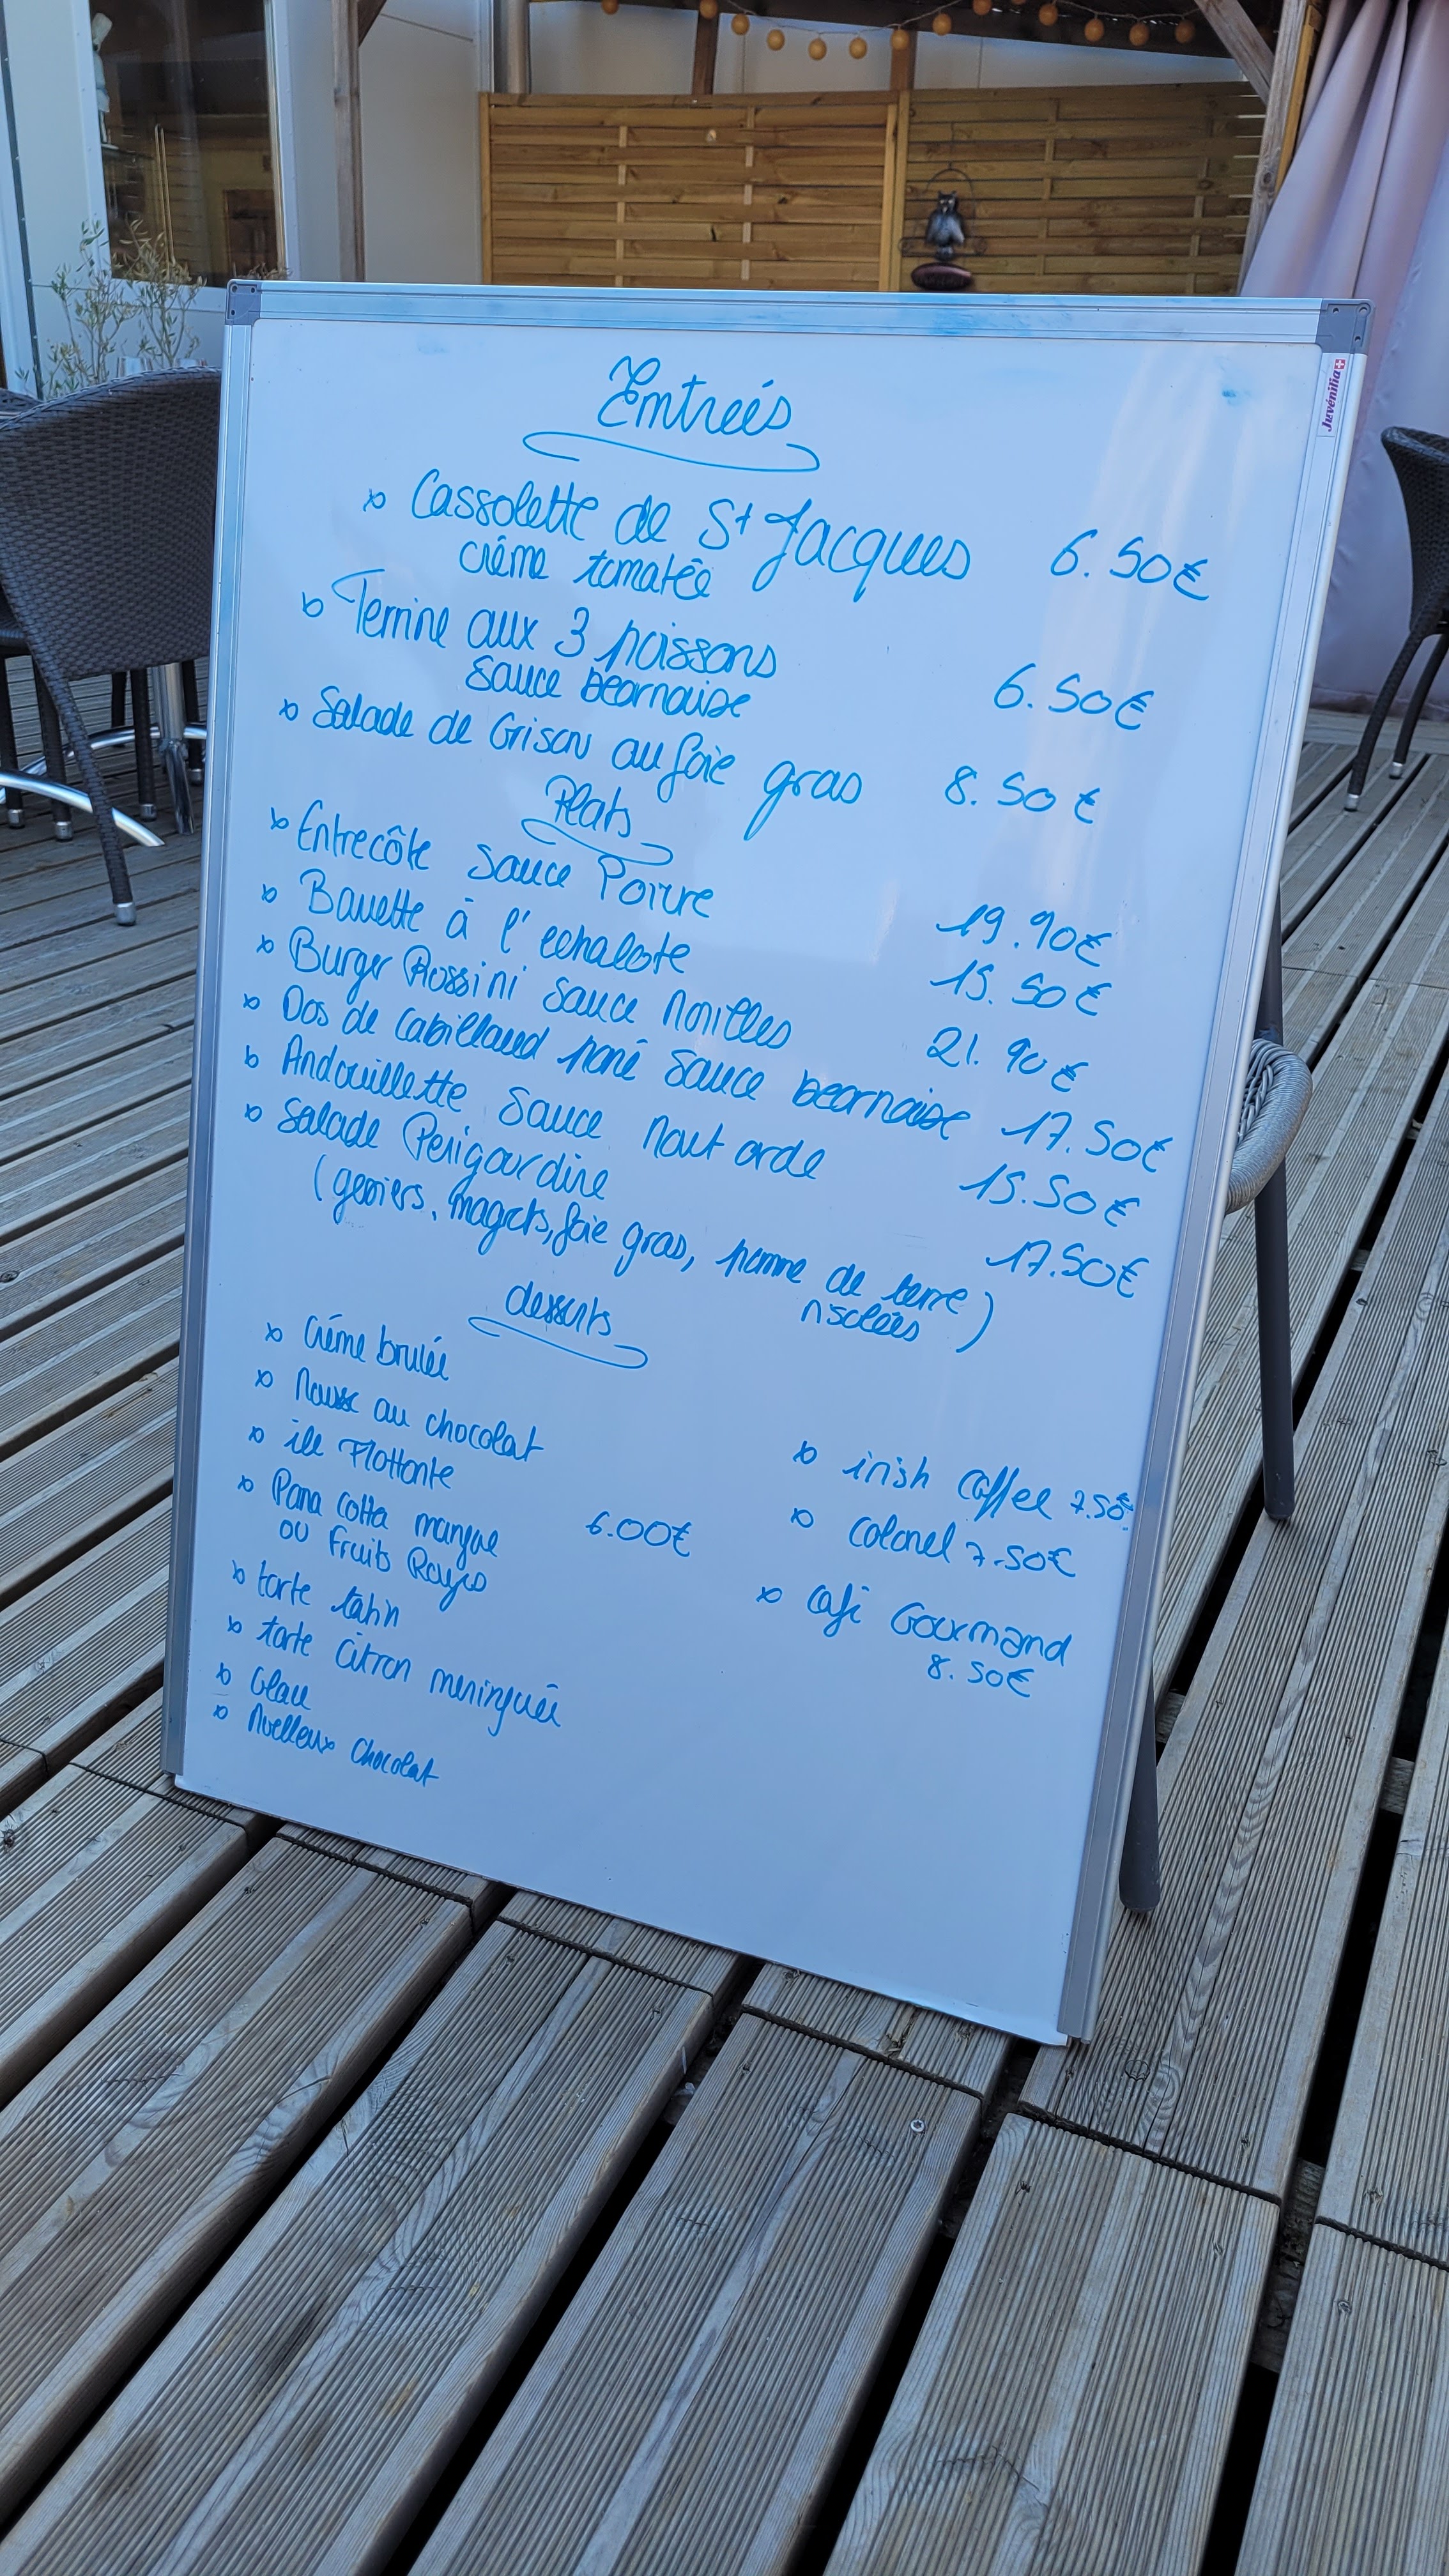 Entreés
Cassolette de St Jacques 6.50€
crème tomatée
Terrine aux 3 poissons
sauce bearnaise 6.50€
Salade de Grison au foie gras 8.50€
Plats
Entrecôte sauce Poivre 19.90€
Bavette à l'echalote 15.50€
Burger Rossini sauce Morilles 21.90€
Dos de cabillaud pané sauce bearnaise 17.50€
Andouillette sauce Moutarde 15.50€
Salade Perigourdine 17.50€
(gesiers, magrets, foie gras, pomme de terre)
risolées
desserts
Crème brulée
Mousse au chocolat
ile Flottante
Pana cotta mangue
ou Fruits Rouges
6.00€
tarte tatin
tarte Citron meringuée
Glace
Moelleux Chocolat
irish Coffee 7.50€
Colonel 7.50€
Café Gourmand
8.50€
Juvénilia